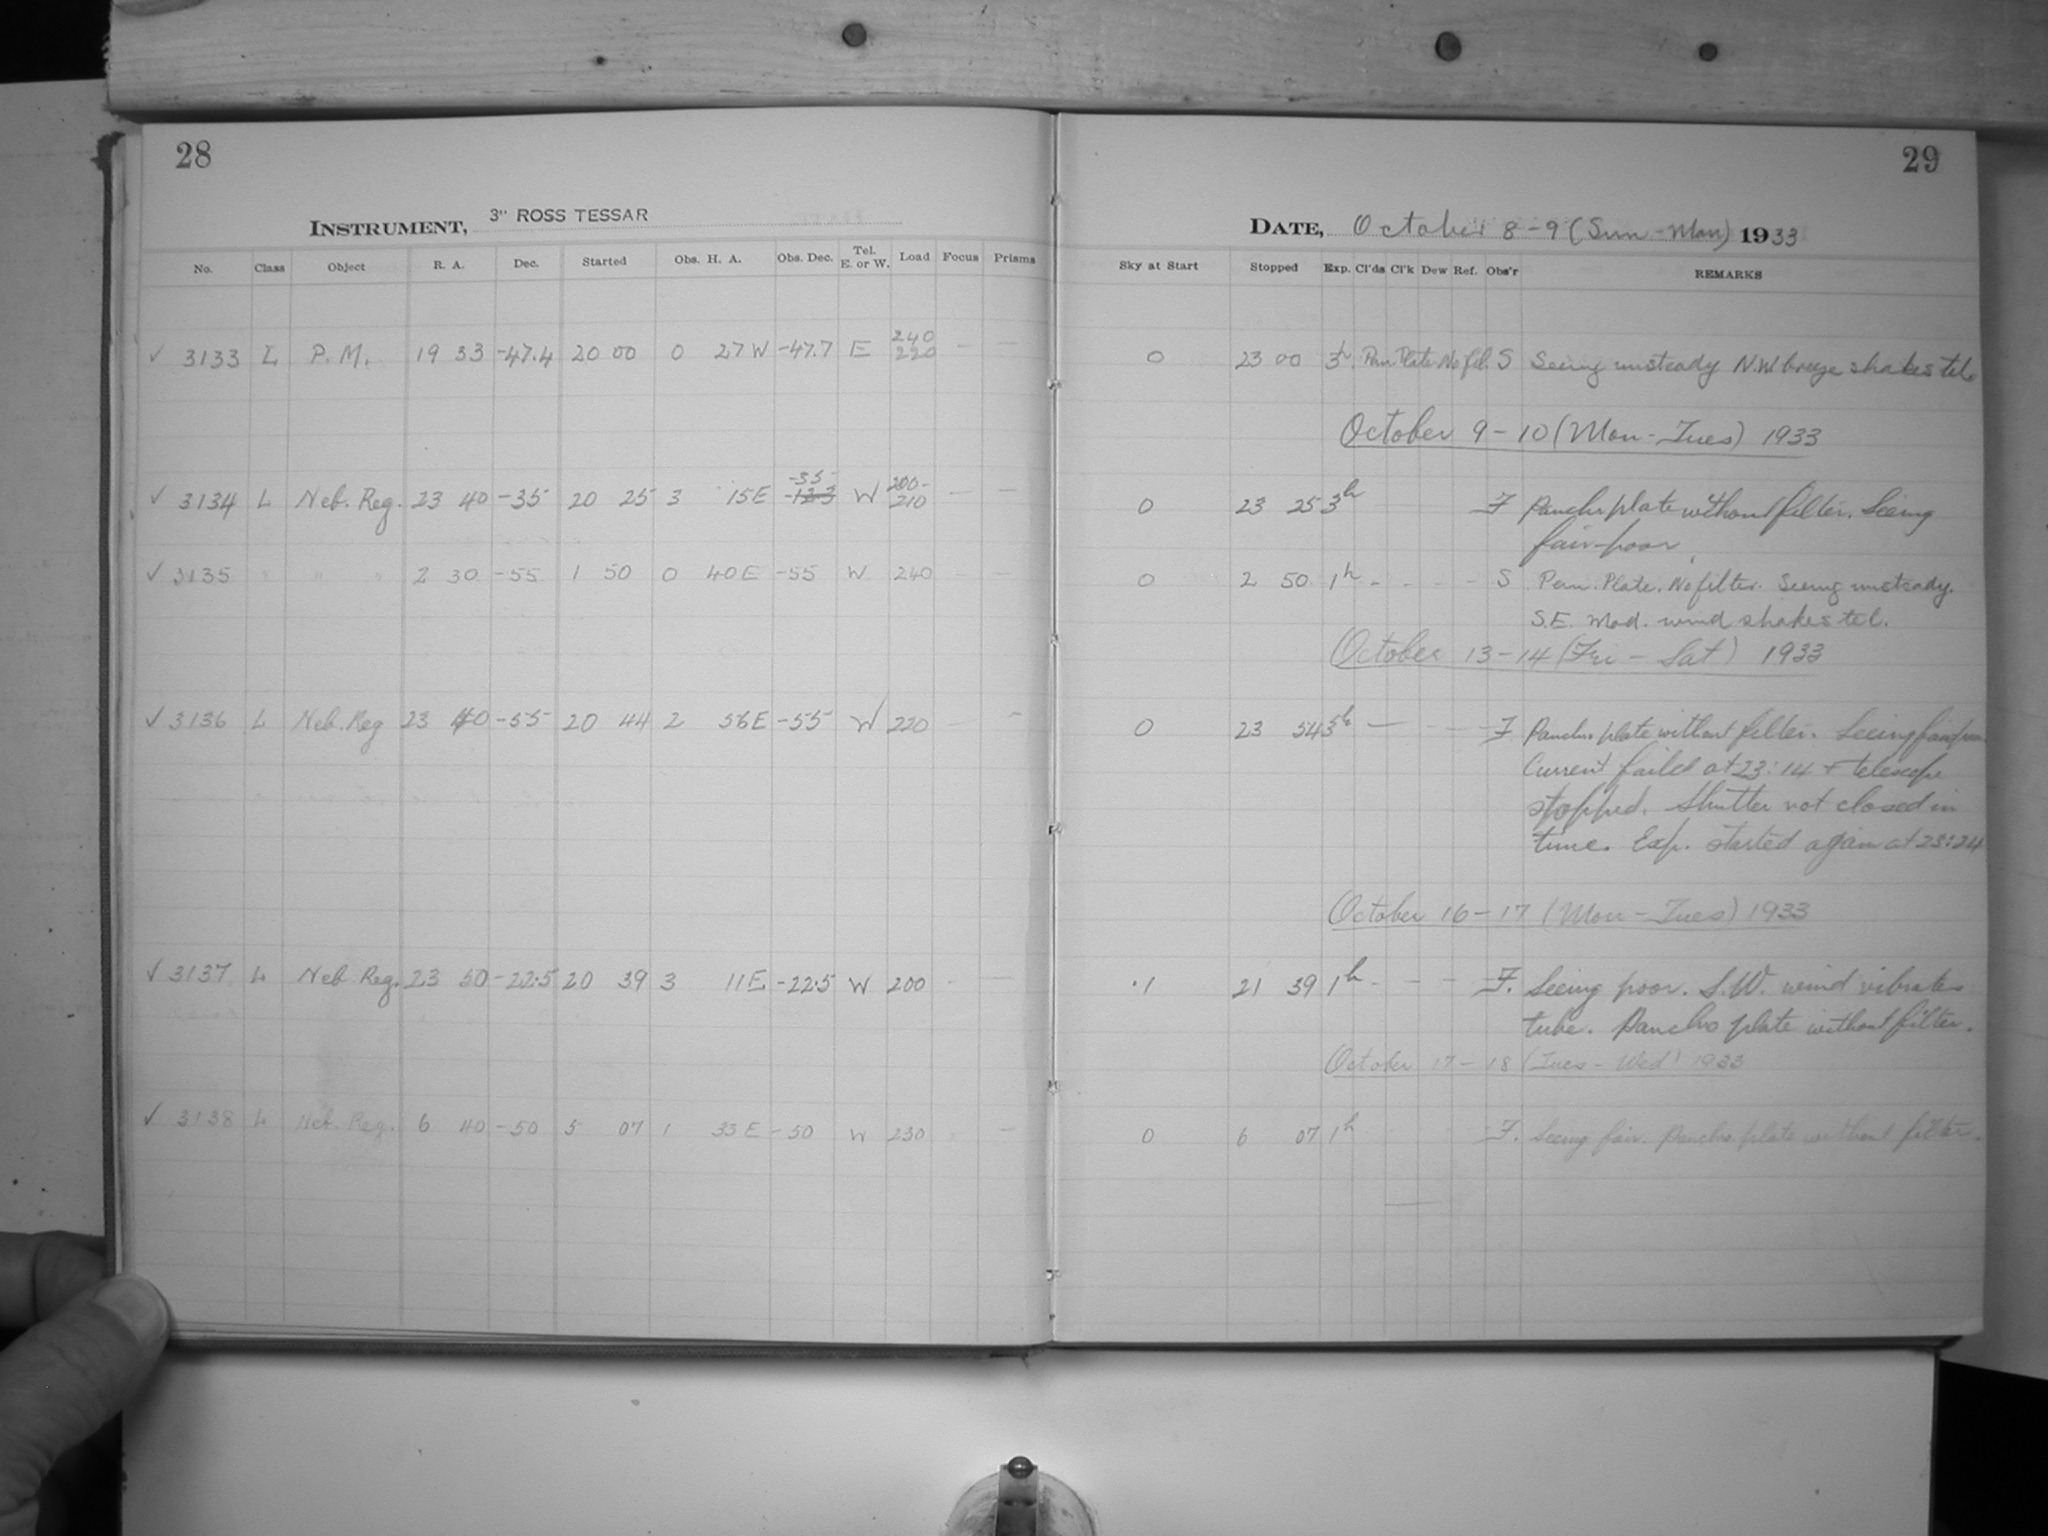 28
29
INSTRUMENT, 3" ROSS TESSAR
DATE, October 8-9 (Sun-Mon) 1933
No. Class Object R. A. Dec. Started Obs. H. A. Obs. Dec. Tel. E. or W. Load Focus Prisms
Sky at Start Stopped Exp. Cl'ds Cl'k Dew Ref. Obs'r REMARKS
✓ 3133 L P.M. 19 33 -47.4 20 00 0 27 W -47.7 E 240 220 — —
0 23 00 3h Pan. Plate No fil. S Seeing unsteady N.W. breeze shakes tel.
October 9-10 (Mon-Tues) 1933
✓ 3134 L Neb. Reg. 23 40 -35 20 25 3 15 E -35 W 200- 210 — —
0 23 25 3h F Pancho plate without filter. Seeing
fair-poor
✓ 3135 " " " 2 30 -55 1 50 0 40 E -55 W 240 — —
0 2 50 1h - - - - S Pan. Plate. No filter. Seeing unsteady.
S.E. Mod. wind shakes tel.
October 13-14 (Fri - Sat) 1933
✓ 3136 L Neb. Reg 23 40 -55 20 44 2 56 E -55 W 220 — -
0 23 54 3h — - - F Pancho plate without filter. Seeing fair
Current failed at 23:14 + telescope
stopped. Shutter not closed in
time. Exp. started again at 23:24
October 16-17 (Mon-Tues) 1933
✓ 3137 L Neb. Reg. 23 50 -22.5 20 39 3 11 E -22.5 W 200 - —
.1 21 39 1h - - - F. Seeing poor. S.W. wind vibrates
tube. Pancho plate without filter.
October 17-18 (Tues-Wed) 1933
✓ 3138 L Neb. Reg. 6 40 -50 5 07 1 33 E -50 W 230 —
0 6 07 1h F. Seeing fair. Pancho plate without filter.